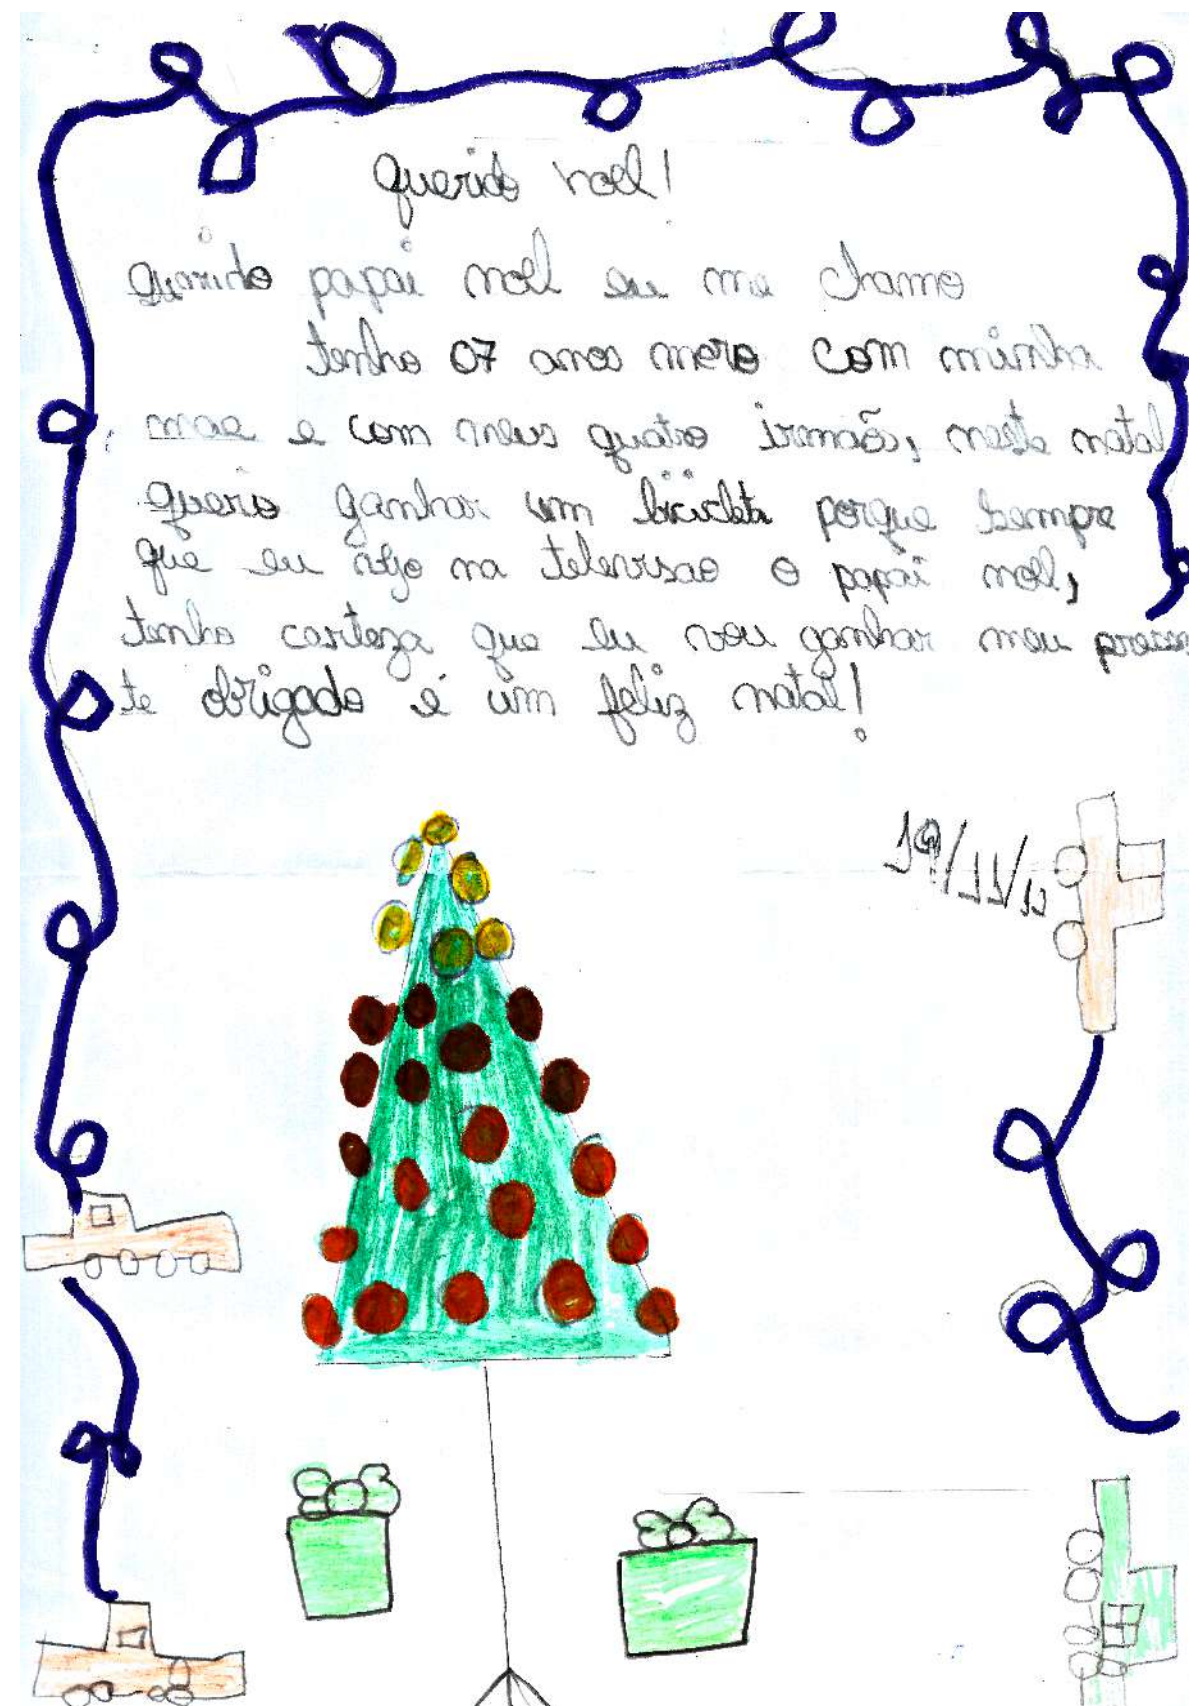 Querido noel!
Querido papai noel eu me chamo
tenho 07 anos moro com minha
mae e com meus quatro irmãos, neste natal
quero ganhar um bicicleta porque sempre
que eu vejo na televisao o papai noel,
tenho certeza que eu vou ganhar meu presen
te obrigado é um feliz natal!
19/11/12